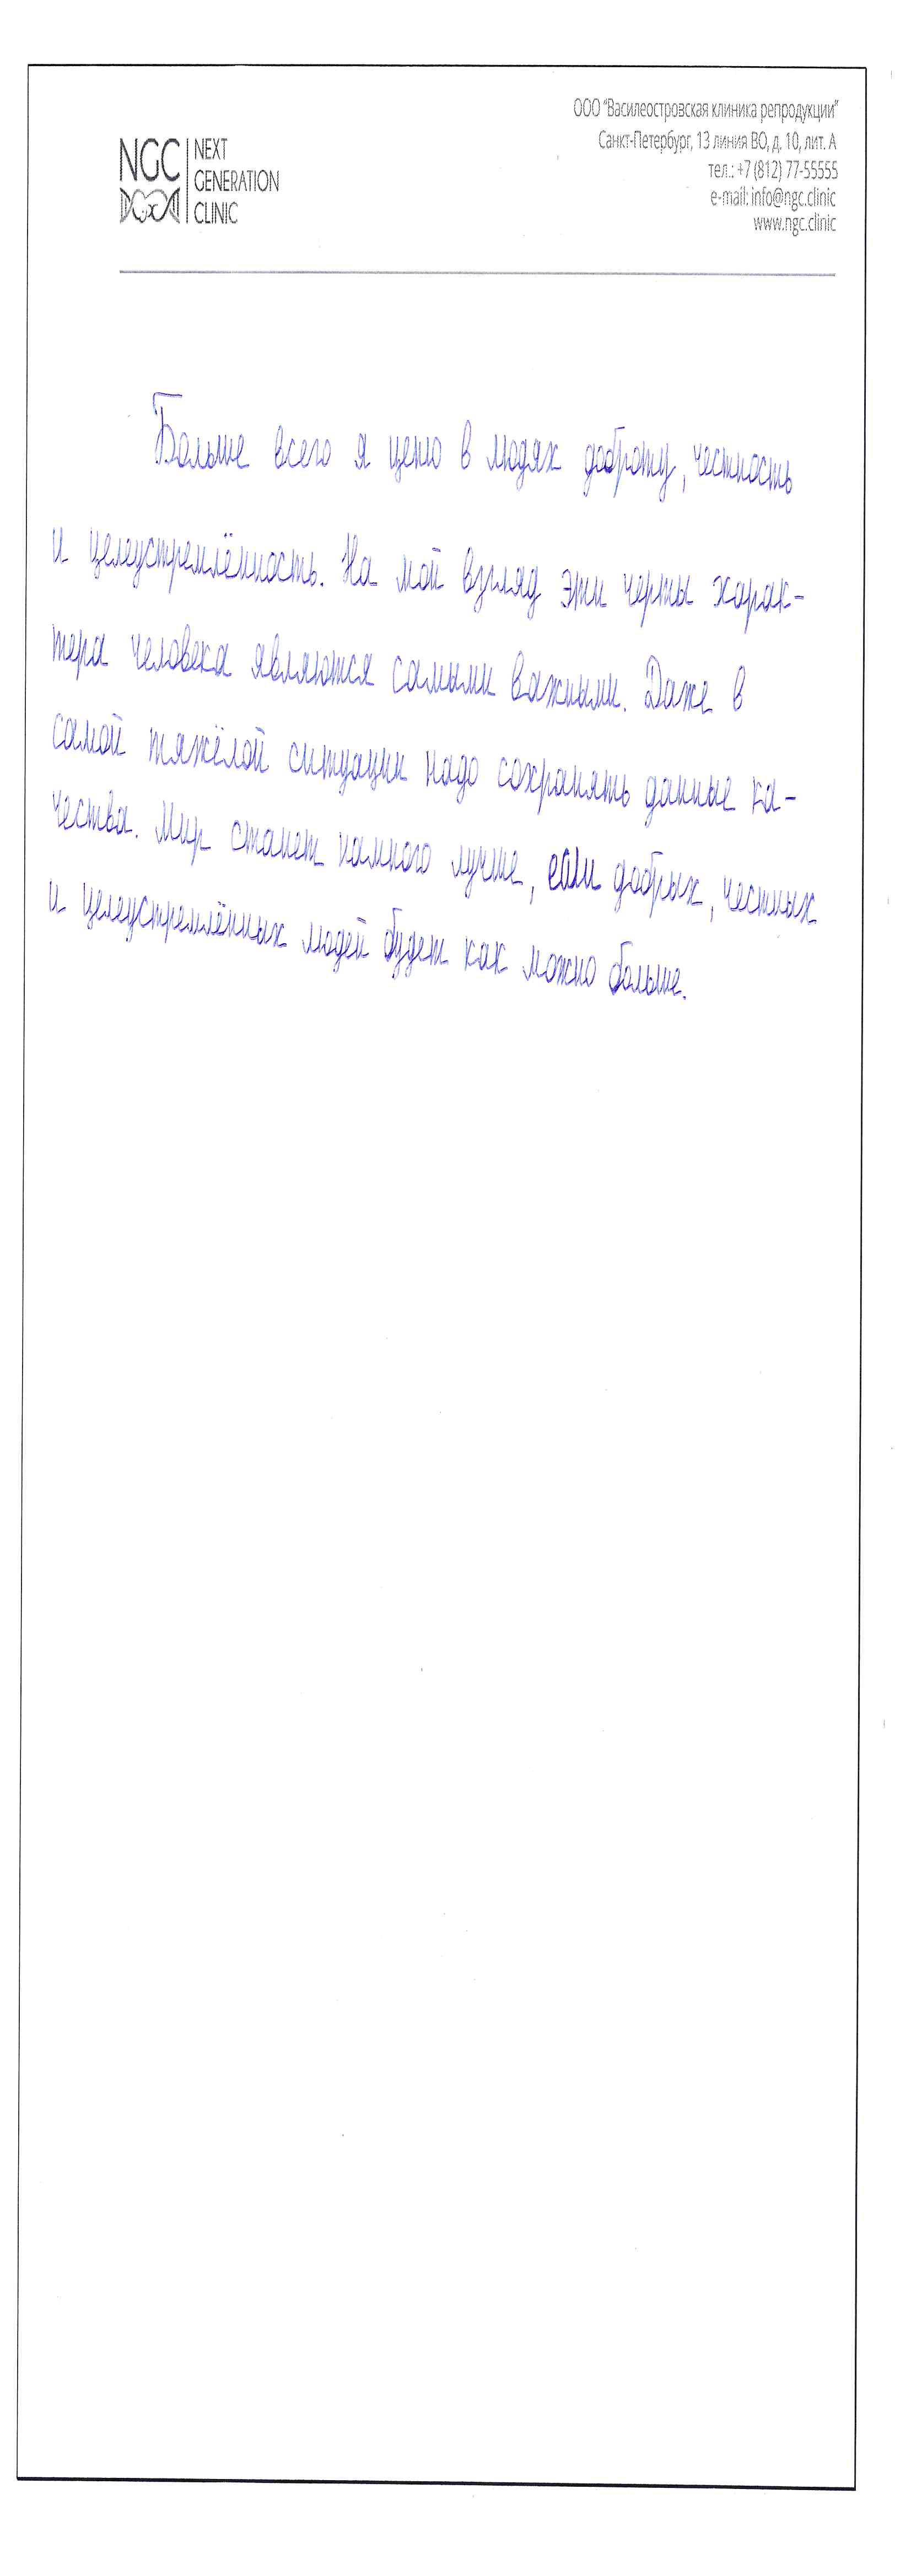 NGC
NEXT
GENERATION
CLINIC
ООО "Василеостровская клиника репродукции"
Санкт-Петербург, 13 линия ВО, д. 10, лит. А
тел.: +7 (812) 77-55555
e-mail: info@ngc.clinic
www.ngc.clinic
Больше всего я ценю в людях доброту, честность
и целеустремлённость. На мой взгляд эти черты харак-
тера человека являются самыми важными. Даже в
самой тяжёлой ситуации надо сохранять данные ка-
чества. Мир станет намного лучше, если добрых, честных
и целеустремлённых людей будет как можно больше.